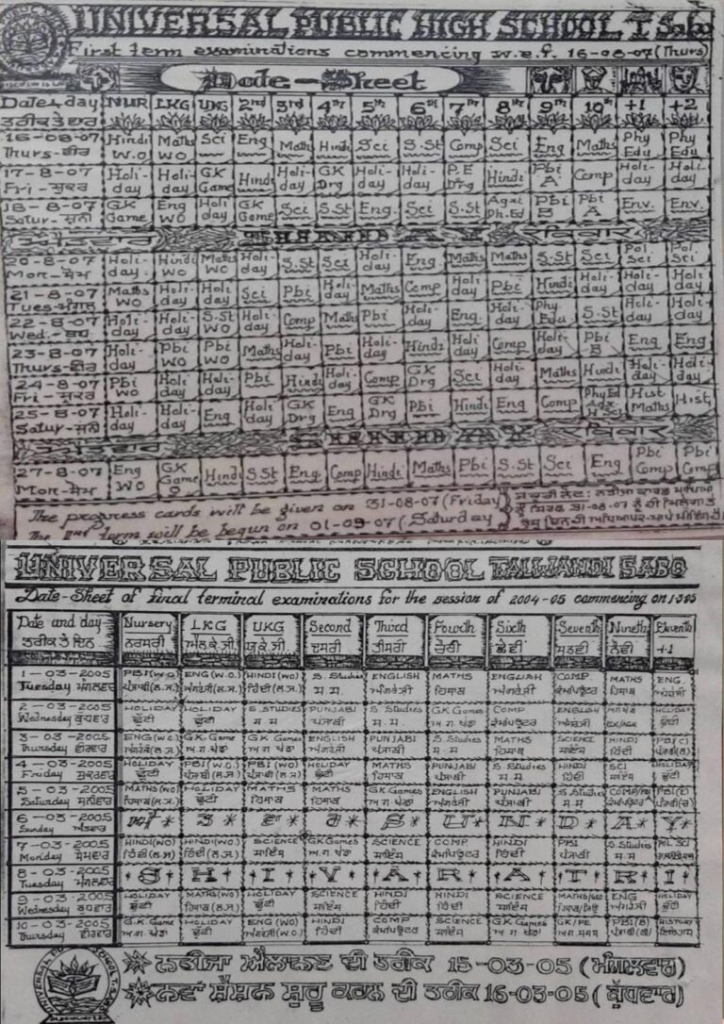 UNIVERSAL PUBLIC HIGH SCHOOL T. Sabo
First term examinations commencing w.e.f. 16-08-07 (Thurs)
Date-Sheet
Date & day NUR LKG UKG 2nd 3rd 4th 5th 6th 7th 8th 9th 10th +1 +2
ਤਰੀਕ ਤੇ ਵਾਰ
16-08-07 Hindi Maths Sci Eng Math Hindi Sci S.St Comp Sci Eng Maths Phy Phy
Thurs-ਵੀਰ W.O WO Edu Edu
17-8-07 Holi- Holi- GK Hindi Holi- GK Holi- Holi- P.E Hindi Pbi Comp Holi- Holi-
Fri-ਸ਼ੁਕਰ day day Game day Drg day day Drg A day day
18-8-07 GK Eng Holi- GK Sci S.St Eng Sci S.St Agri Pbi Pbi Env. Env.
Satur-ਸ਼ਨੀ Game WO day Game Ph.Ed B A
ਐਤਵਾਰ SUNDAY
20-8-07 Holi- Hindi Maths Holi- S.St Sci Holi- Eng Maths Maths S.St Sci Pol. Pol.
Mon-ਸੋਮ day WO WO day day Sci Sci
21-8-07 Maths Holi- Holi- Sci Pbi Holi- Maths Comp Holi- Pbi Hindi Holi- Holi- Holi-
Tues-ਮੰਗਲ WO day day day day day day day
22-8-07 Holi- Holi- S.St Holi- Comp Maths Pbi Holi- Eng Holi- Phy S.St Holi- Holi-
Wed-ਬੁਧ day day WO day day day Edu day day
23-8-07 Holi- Pbi Pbi Maths Holi- Pbi Holi- Hindi Holi- Comp Holi- Pbi Eng Eng
Thurs-ਵੀਰ day WO WO day day day day B
24-8-07 Pbi Holi- Holi- Pbi Hindi Holi- Comp GK Sci Holi- Maths Hindi Holi- Holi-
Fri-ਸ਼ੁਕਰ WO day day day Drg day day day
25-8-07 Holi- Holi- Eng Holi- GK Eng GK Pbi Hindi Eng Comp Phy Ed Hist Hist.
Satur-ਸ਼ਨੀ day day day Drg Drg Maths
SUNDAY
27-8-07 Eng G.K Hindi S.St Eng Comp Hindi Maths Pbi S.St Sci Eng Pbi Pbi
Mon-ਸੋਮ WO Game Comp Comp
The progress cards will be given on 31-08-07 (Friday)
The 2nd term will be begun on 01-09-07 (Saturday)
UNIVERSAL PUBLIC SCHOOL TALWANDI SABO
Date-Sheet of final terminal examinations for the session of 2004-05 commencing on 1-3-05
Date and day Nursery LKG UKG Second Third Fourth Sixth Seventh Nineth Eleventh
ਤਰੀਕ ਤੇ ਦਿਨ ਨਰਸਰੀ ਐਲ.ਕੇ.ਜੀ ਯੂ.ਕੇ.ਜੀ ਦੂਸਰੀ ਤੀਸਰੀ ਚੌਥੀ ਛੇਵੀਂ ਸਤਵੀਂ ਨੌਵੀਂ +1
1-03-2005 PBI(W.O.) ENG(W.O.) HINDI(WO) S.Studies ENGLISH MATHS ENGLISH COMP. MATHS ENG.
Tuesday ਮੰਗਲਵਾਰ ਪੰਜਾਬੀ(ਲ.ਸ.) ਅੰਗਰੇਜ਼ੀ(ਲ.ਸ.) ਹਿੰਦੀ(ਲ.ਸ.) ਸ.ਸ. ਅੰਗਰੇਜ਼ੀ ਹਿਸਾਬ ਅੰਗਰੇਜ਼ੀ ਕੰਪਿਊਟਰ ਹਿਸਾਬ ਅੰਗਰੇਜ਼ੀ
2-03-2005 HOLIDAY HOLIDAY S.STUDIES PUNJABI S.Studies G.K Games COMP ENGLISH HOLIDAY
Wednesday ਬੁਧਵਾਰ ਛੁੱਟੀ ਛੁੱਟੀ ਸ.ਸ ਪੰਜਾਬੀ ਸ.ਸ. ਅਾ.ਗ.ਖੇਡਾਂ ਕੰਪਿਊਟਰ ਅੰਗਰੇਜ਼ੀ ਛੁੱਟੀ
3-03-2005 ENG(W.O) G.K.Game G.K Games ENGLISH PUNJABI S.Studies MATHS SCIENCE HINDI PBI(C)
Thursday ਵੀਰਵਾਰ ਅੰਗਰੇਜ਼ੀ(ਲ.ਸ) ਅੰਗਰੇਜ਼ੀ ਪੰਜਾਬੀ ਸ.ਸ ਹਿਸਾਬ ਸਾਇੰਸ ਹਿੰਦੀ
4-03-2005 HOLIDAY PBI(W.O.) PBI(WO) HOLIDAY MATHS PUNJABI S.Studies HINDI SCI HOLIDAY
Friday ਸ਼ੁਕਰਵਾਰ ਛੁੱਟੀ ਪੰਜਾਬੀ(ਲ.ਸ) ਪੰਜਾਬੀ(ਲ.ਸ) ਛੁੱਟੀ ਹਿਸਾਬ ਪੰਜਾਬੀ ਸ.ਸ ਹਿੰਦੀ ਸਾਇੰਸ ਛੁੱਟੀ
5-03-2005 MATHS(WO) HOLIDAY MATHS MATHS G.K.Games ENGLISH PUNJABI S.Studies PBI(E)
Saturday ਸ਼ਨੀਵਾਰ ਹਿਸਾਬ(ਲ.ਸ) ਛੁੱਟੀ ਹਿਸਾਬ ਹਿਸਾਬ ਅੰਗਰੇਜ਼ੀ ਪੰਜਾਬੀ ਸ.ਸ
6-03-2005 SUNDAY
Sunday ਐਤਵਾਰ
7-03-2005 HINDI(WO) HINDI(WO) SCIENCE GK Games SCIENCE COMP HINDI PBI S.Studies
Monday ਸੋਮਵਾਰ ਹਿੰਦੀ(ਲ.ਸ.) ਹਿੰਦੀ(ਲ.ਸ.) ਸਾਇੰਸ ਸਾਇੰਸ ਕੰਪਿਊਟਰ ਹਿੰਦੀ ਪੰਜਾਬੀ ਸ.ਸ
8-03-2005 SHIVARATRI
Tuesday ਮੰਗਲਵਾਰ
9-03-2005 HOLIDAY MATHS(WO) HOLIDAY SCIENCE HINDI HINDI SCIENCE ENG HOLIDAY
Wednesday ਬੁਧਵਾਰ ਛੁੱਟੀ ਹਿਸਾਬ(ਲ.ਸ) ਛੁੱਟੀ ਸਾਇੰਸ ਹਿੰਦੀ ਹਿੰਦੀ ਸਾਇੰਸ ਅੰਗਰੇਜ਼ੀ ਛੁੱਟੀ
10-03-2005 G.K.Game HOLIDAY ENG(WO) HINDI COMP SCIENCE G.K Games PBI(B) HISTORY
Thursday ਵੀਰਵਾਰ ਛੁੱਟੀ ਅੰਗਰੇਜ਼ੀ(ਲ.ਸ) ਹਿੰਦੀ ਕੰਪਿਊਟਰ ਸਾਇੰਸ
ਨਤੀਜਾ ਐਲਾਨਣ ਦੀ ਤਰੀਕ 15-03-05 (ਮੰਗਲਵਾਰ)
ਨਵਾਂ ਸੈਸ਼ਨ ਸ਼ੁਰੂ ਕਰਨ ਦੀ ਤਰੀਕ 16-03-05 (ਬੁੱਧਵਾਰ)